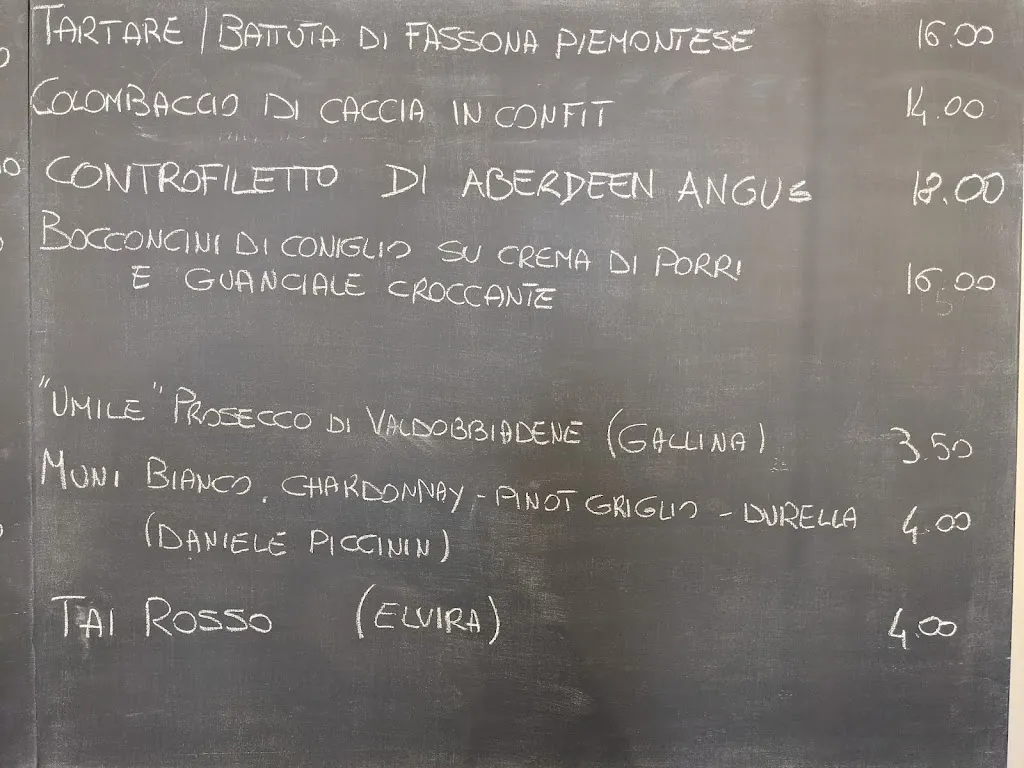 TARTARE / BATTUTA DI FASSONA PIEMONTESE 16.00
COLOMBACCIO DI CACCIA IN CONFIT 14.00
CONTROFILETTO DI ABERDEEN ANGUS 18.00
BOCCONCINI DI CONIGLIO SU CREMA DI PORRI
E GUANCIALE CROCCANTE 16.00
"UMILE" PROSECCO DI VALDOBBIADENE (GALLINA) 3.50
MUNI BIANCO. CHARDONNAY - PINOT GRIGLIO - DURELLA 4.00
(DANIELE PICCININ)
TAI ROSSO (ELVIRA) 4.00